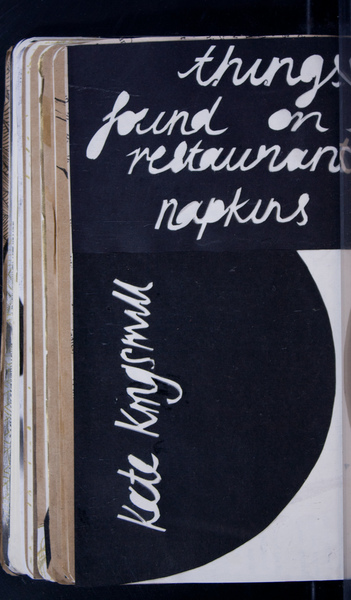 things
found on
restaurant
napkins
Kate Kingsmill